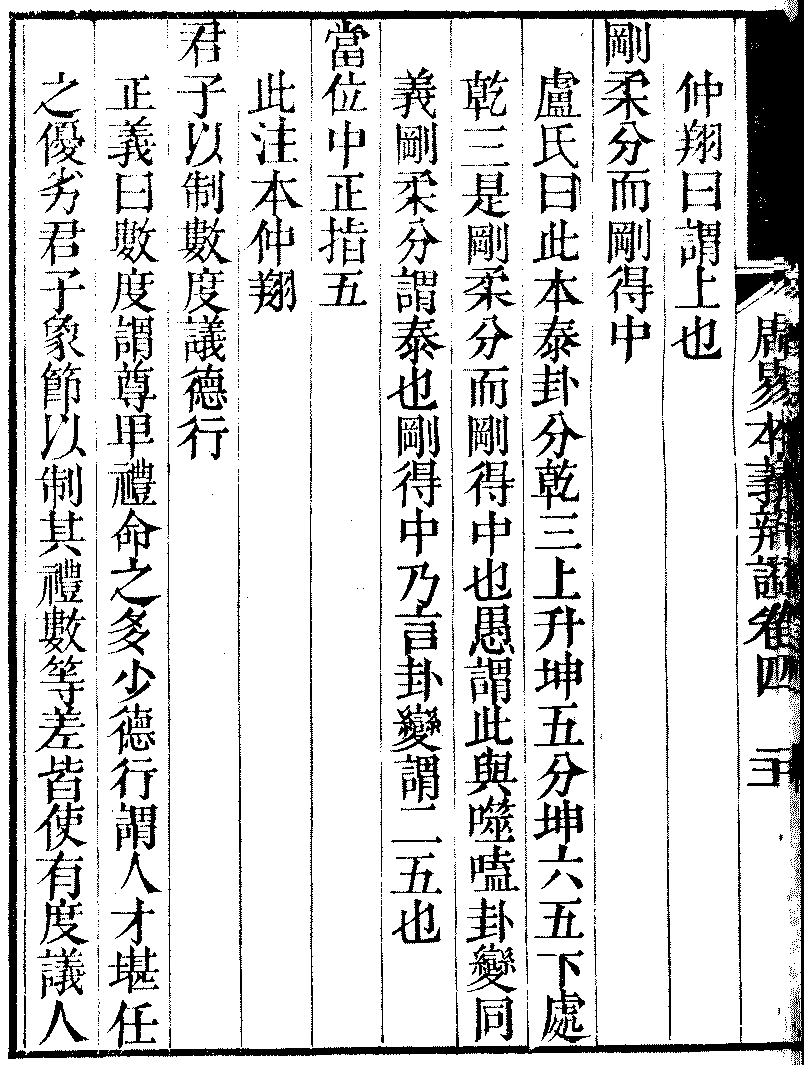 周易本義辨證卷四
仲翔曰謂上也
剛柔分而剛得中
盧氏曰此本泰卦分乾三上升坤五分坤六五下處
乾三是剛柔分而剛得中也愚謂此與噬嗑卦變同
義剛柔分謂泰也剛得中乃言卦變謂二五也
當位中正指五
此注本仲翔
君子以制數度議德行
正義曰數度謂尊卑禮命之多少德行謂人才堪任
之優劣君子象節以制其禮數等差皆使有度議人